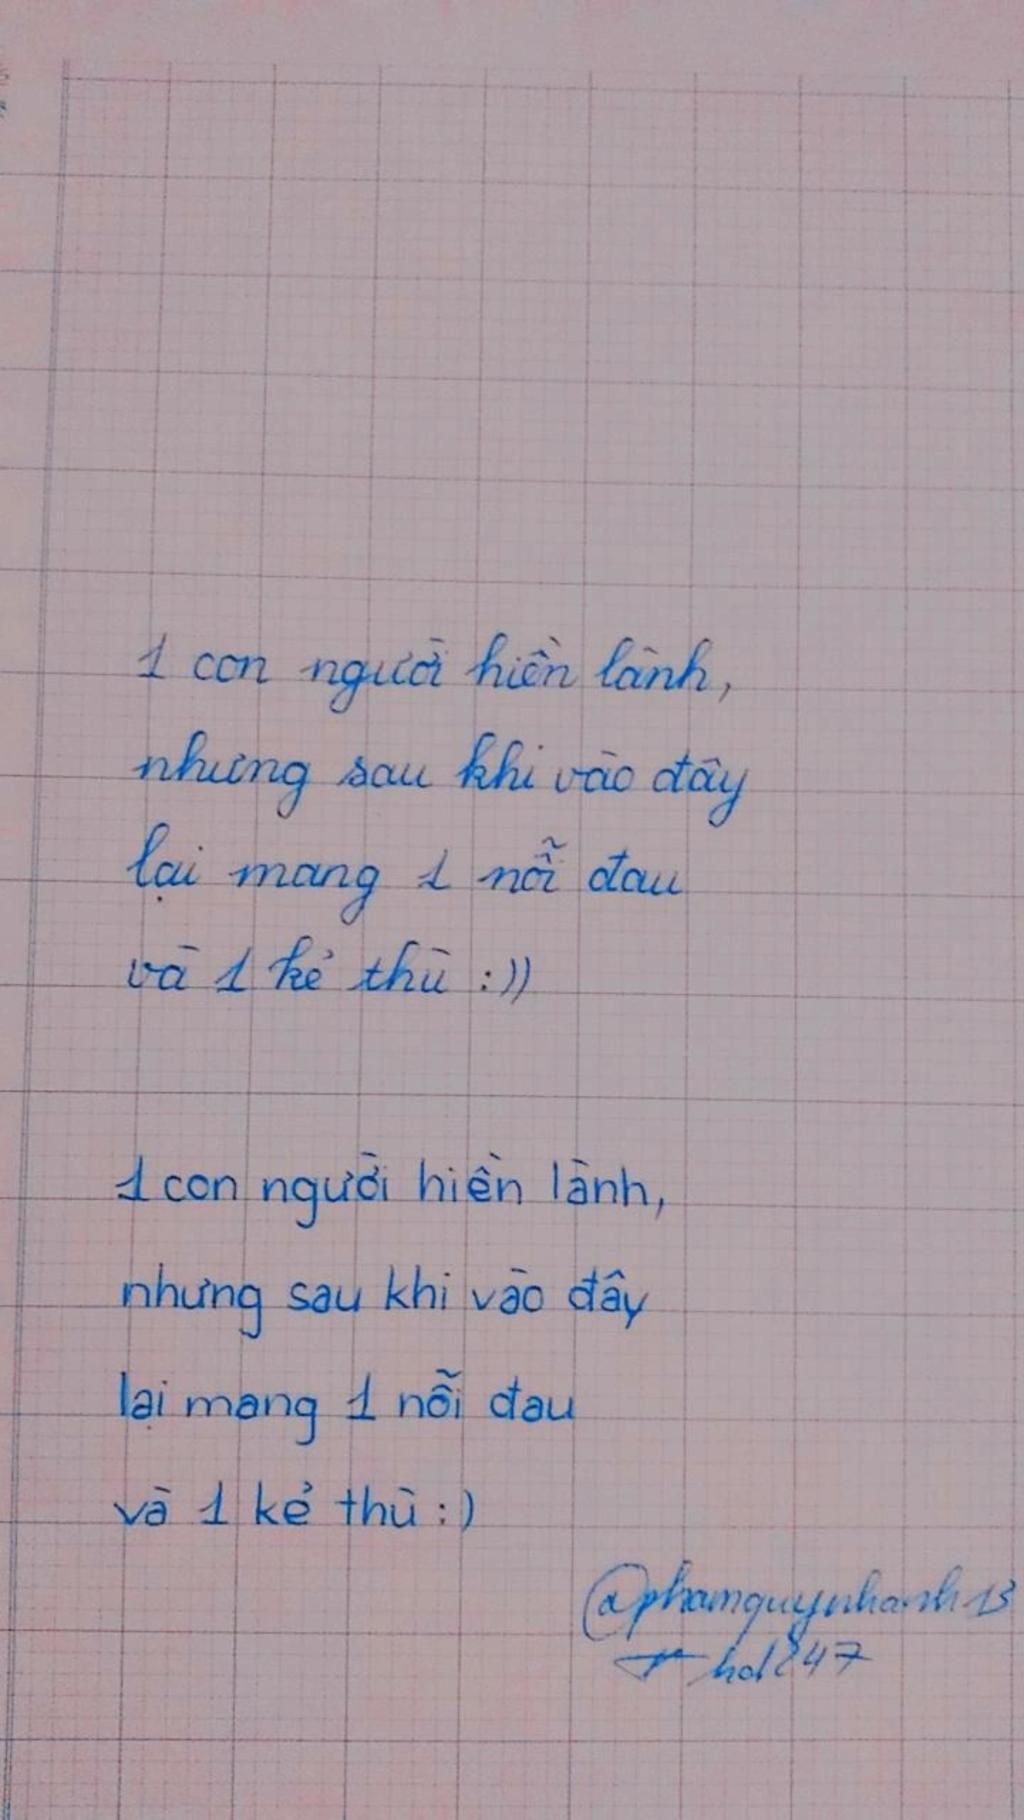 1 con người hiền lành,
nhưng sau khi vào đây
lại mang 1 nỗi đau
và 1 kẻ thù :))
1 con người hiền lành,
nhưng sau khi vào đây
lại mang 1 nỗi đau
và 1 kẻ thù :)
@phamquynhanh13